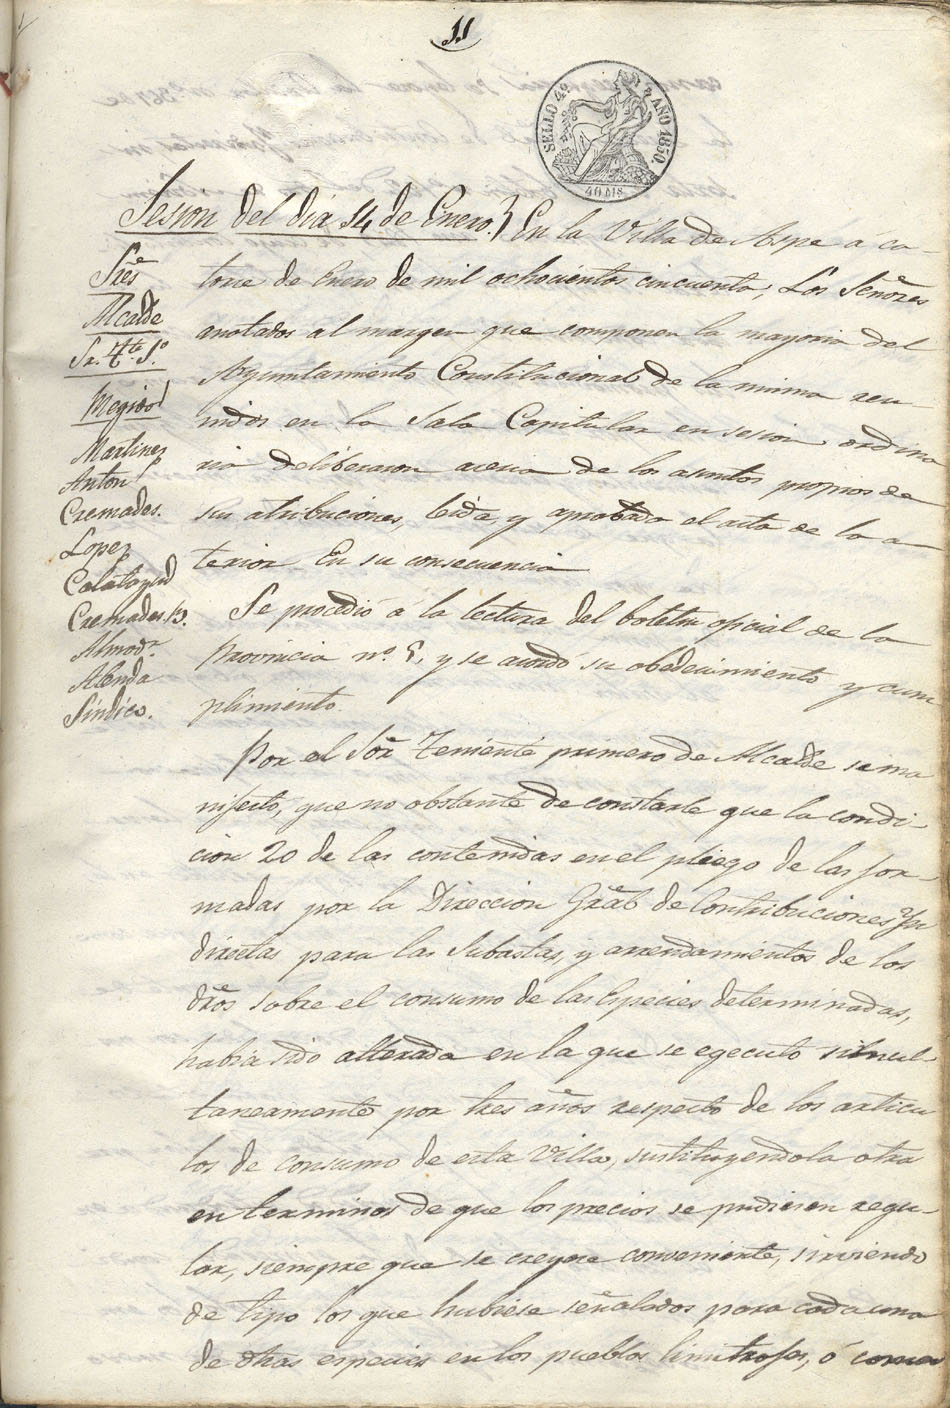 11
SELLO 4º AÑO 1850.
40 Ms.
Sesion del dia 14 de Enero.} En la Villa de Aspe a ca-
torce de Enero de mil ochocientos cincuenta, Los Señores
anotados al margen que componen la mayoria del
Ayuntamiento Constitucional de la misma reu
nidos en la Sala Capitular en sesion ordina
ria deliberaron acerca de los asuntos propios de
sus atribuciones, leida, y aprobada el acta de la an
terior En su consecuencia
Sres
Alcalde
Sr. Tte. 1º
Megias
Martinez
Anton
Cremades.
Lopez
Calatayud
Cremades B.
Almodr.
Alenda
Sindico.
Se procedió á la lectura del boletin oficial de la
Provincia nº. 5, y se acordo su obedecimiento y cum
plimiento.
Por el Sor Teniente primero de Alcalde se ma
nifesto, que no obstante de constarle que la condi-
cion 20 de las contenidas en el pliego de las for
madas por la Direccion Gral de Contribuciones Yn
directas para las Subastas, y arrendamientos de los
dros sobre el consumo de las Especies determinadas,
habia sido alterada en la que se egecutó simul-
taneamente por tres años respecto de los articu
los de consumo de esta Villa, sustituyendola otra
en terminos de que los precios se pudiesen regu-
lar, siempre que se creyese conveniente, sirviendo
de tipo los que hubiese señalados para cada una
de dhas especies en los pueblos limitrofes, ó comar